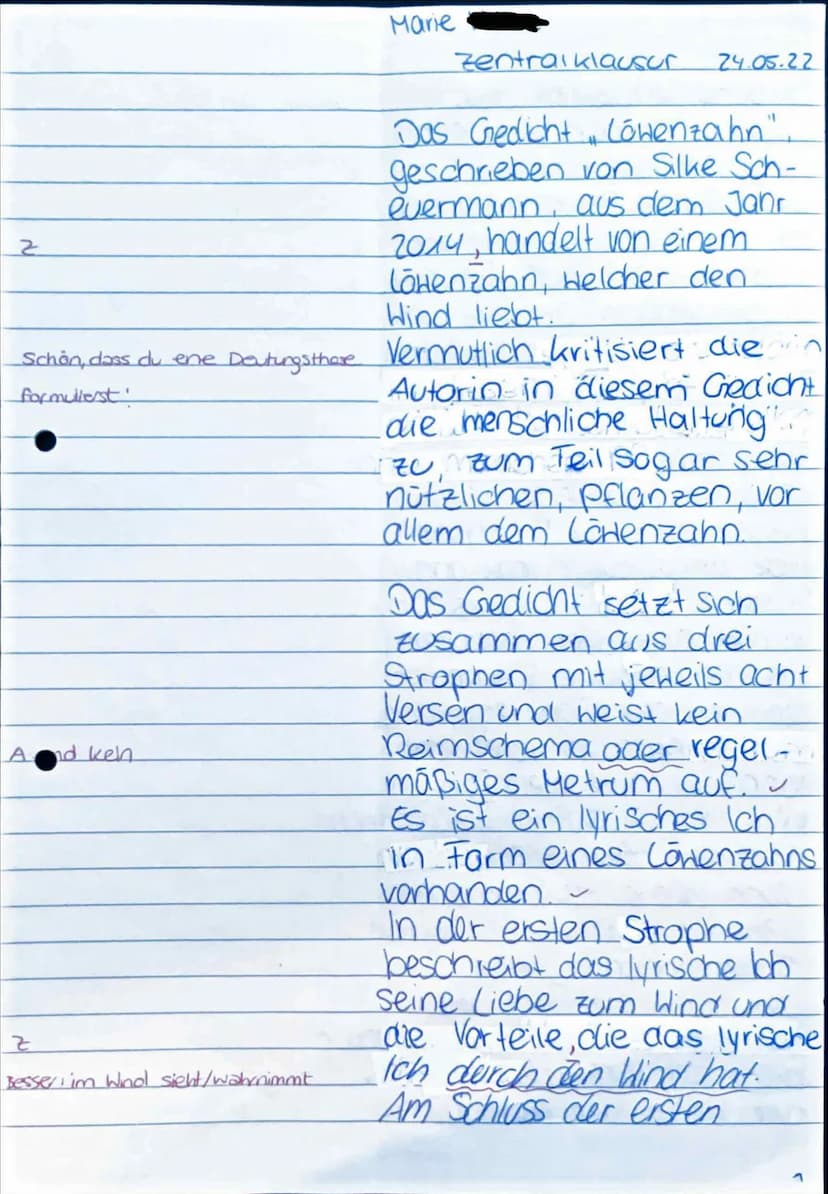 Marie
Zentralklausur 24.05.22
Das Gedicht „Löwenzahn",
geschrieben von Silke Sch-
euermann, aus dem Jahr
z 2014, handelt von einem
Löwenzahn, welcher den
Wind liebt.
Schön, dass du eine Deutungsthese Vermutlich kritisiert die
formulierst! Autorin in diesem Gedicht
die menschliche Haltung
zu, zum Teil sogar sehr
nützlichen, Pflanzen, vor
allem dem Löwenzahn.
Das Gedicht setzt sich
zusammen aus drei
Strophen mit jeweils acht
Versen und weist kein
A und kein Reimschema oder regel-
mäßiges Metrum auf. ✓
Es ist ein lyrisches Ich
in Form eines Löwenzahns
vorhanden. ✓
In der ersten Strophe
beschreibt das lyrische Ich
seine Liebe zum Wind und
z die Vorteile, die das lyrische
Besser: im Wind sieht/wahrnimmt Ich durch den Wind hat.
Am Schluss der ersten
1